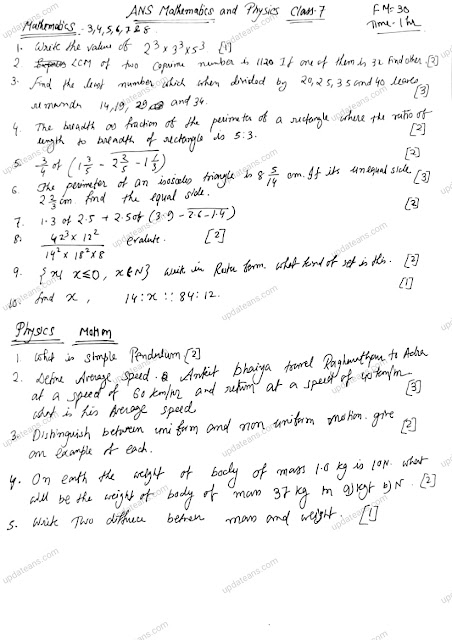 ANS Mathematics and Physics Class-7
FM=30
Time-1hr
Mathematics 3,4,5,6,7 & 8
1. Write the value of 2³ × 3³ × 5³ [1]
2. LCM of two Coprime number is 1120 If one of them is 32 find other. [2]
3. Find the least number which when divided by 20, 25, 35 and 40 leaves
remainder 14, 19, 29 and 34. [3]
4. The breadth as fraction of the perimeter of a rectangle where the ratio of
length to breadth of rectangle is 5:3. [2]
5. 3/4 of (1 3/5 - 2 2/5 - 1 1/5) [2]
6. The perimeter of an isosceles triangle is 8 5/14 cm. If its unequal side
2 2/3 cm. find the equal side. [3]
7. 1.3 of 2.5 + 2.5 of (3.9 - 2.6-1.4) [2]
8. 42³ × 12² / 14² × 18² × 8 evalute. [2]
9. {x| x≤0, x∈N} write in Roster form. what kind of set is this. [2]
10. find x, 14:x :: 84:12. [1]
Physics Motion
1. What is simple Pendulum [2]
2. Define Average speed. Ankit bhaiya travel Raghunathpur to Adra
at a speed of 60 km/hr and return at a speed of 40 km/hr
what is his Average speed [3]
3. Distinguish between uniform and non uniform motion. give
an example of each. [2]
4. On earth the weight of body of mass 1.0 kg is 10N. what
will be the weight of body of mass 37 kg in a) kgf b) N. [2]
5. Write Two diffrece betwen mass and weight. [1]
updateans.com